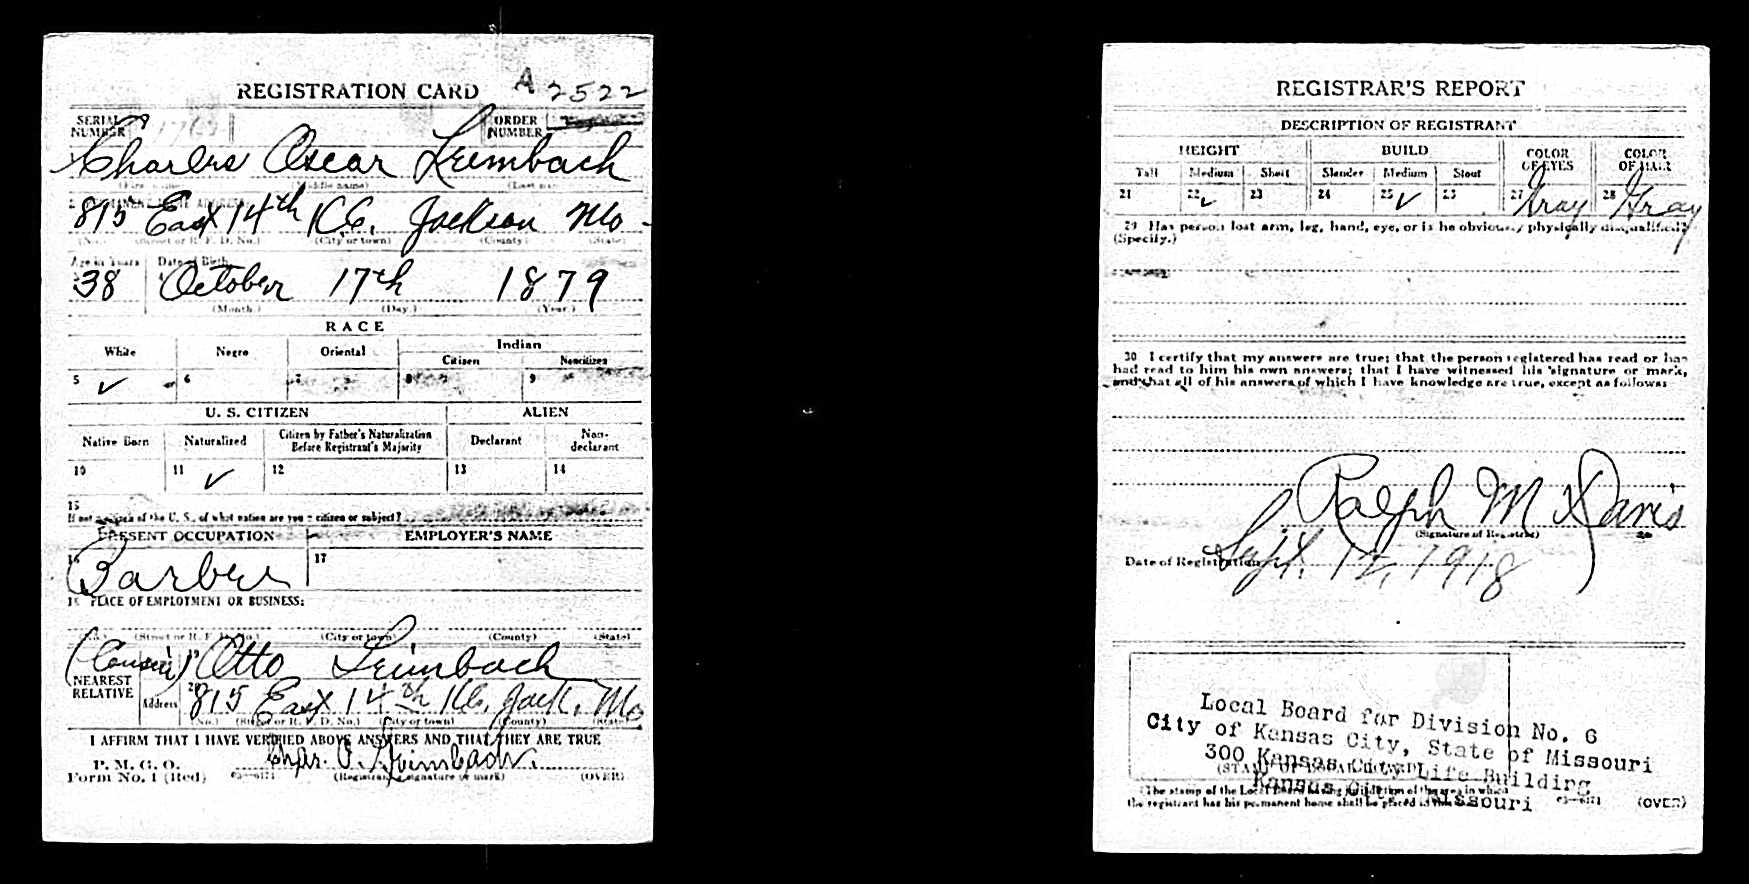 REGISTRATION CARD A 2522
SERIAL NUMBER
ORDER NUMBER
1 Charles Oscar Leimbach
(First name) (Middle name) (Last name)
2 PERMANENT HOME ADDRESS:
815 East 14th K.C. Jackson Mo
(No.) (Street or R. F. D. No.) (City or town) (County) (State)
Age in Years Date of Birth
38 October 17th 1879
(Month.) (Day.) (Year.)
RACE
White Negro Oriental Indian
Citizen Noncitizen
5 ✓ 6 7 8 9
U. S. CITIZEN ALIEN
Native Born Naturalized Citizen by Father's Naturalization Before Registrant's Majority Declarant Non-declarant
10 11 ✓ 12 13 14
15
If not a citizen of the U. S., of what nation are you a citizen or subject?
PRESENT OCCUPATION EMPLOYER'S NAME
16 Barber 17
18 PLACE OF EMPLOYMENT OR BUSINESS:
(No.) (Street or R. F. D. No.) (City or town) (County) (State)
(Cousin) 19 Otto Leimbach
NEAREST RELATIVE
Address 20 815 East 14th K.C. Jack. Mo
(No.) (Street or R. F. D. No.) (City or town) (County) (State)
I AFFIRM THAT I HAVE VERIFIED ABOVE ANSWERS AND THAT THEY ARE TRUE
P. M. G. O.
Form No. 1 (Red) 03—6171 Chas. O. Leimbach. (Registrant's signature or mark) (OVER)
REGISTRAR'S REPORT
DESCRIPTION OF REGISTRANT
HEIGHT BUILD COLOR OF EYES COLOR OF HAIR
Tall Medium Short Slender Medium Stout
21 22 ✓ 23 24 25 ✓ 26 27 Gray 28 Gray
29 Has person lost arm, leg, hand, eye, or is he obviously physically disqualified?
(Specify.)
30 I certify that my answers are true; that the person registered has read or has
had read to him his own answers; that I have witnessed his signature or mark,
and that all of his answers of which I have knowledge are true, except as follows:
Ralph M Davis
(Signature of Registrar)
Date of Registration Sept. 12, 1918
Local Board for Division No. 6
City of Kansas City, State of Missouri
300 Kansas City Life Building
Kansas City, Missouri
(STAMP OF LOCAL BOARD)
(The stamp of the Local Board having jurisdiction of the area in which
the registrant has his permanent home shall be placed in this box.) 03—6171 (OVER)